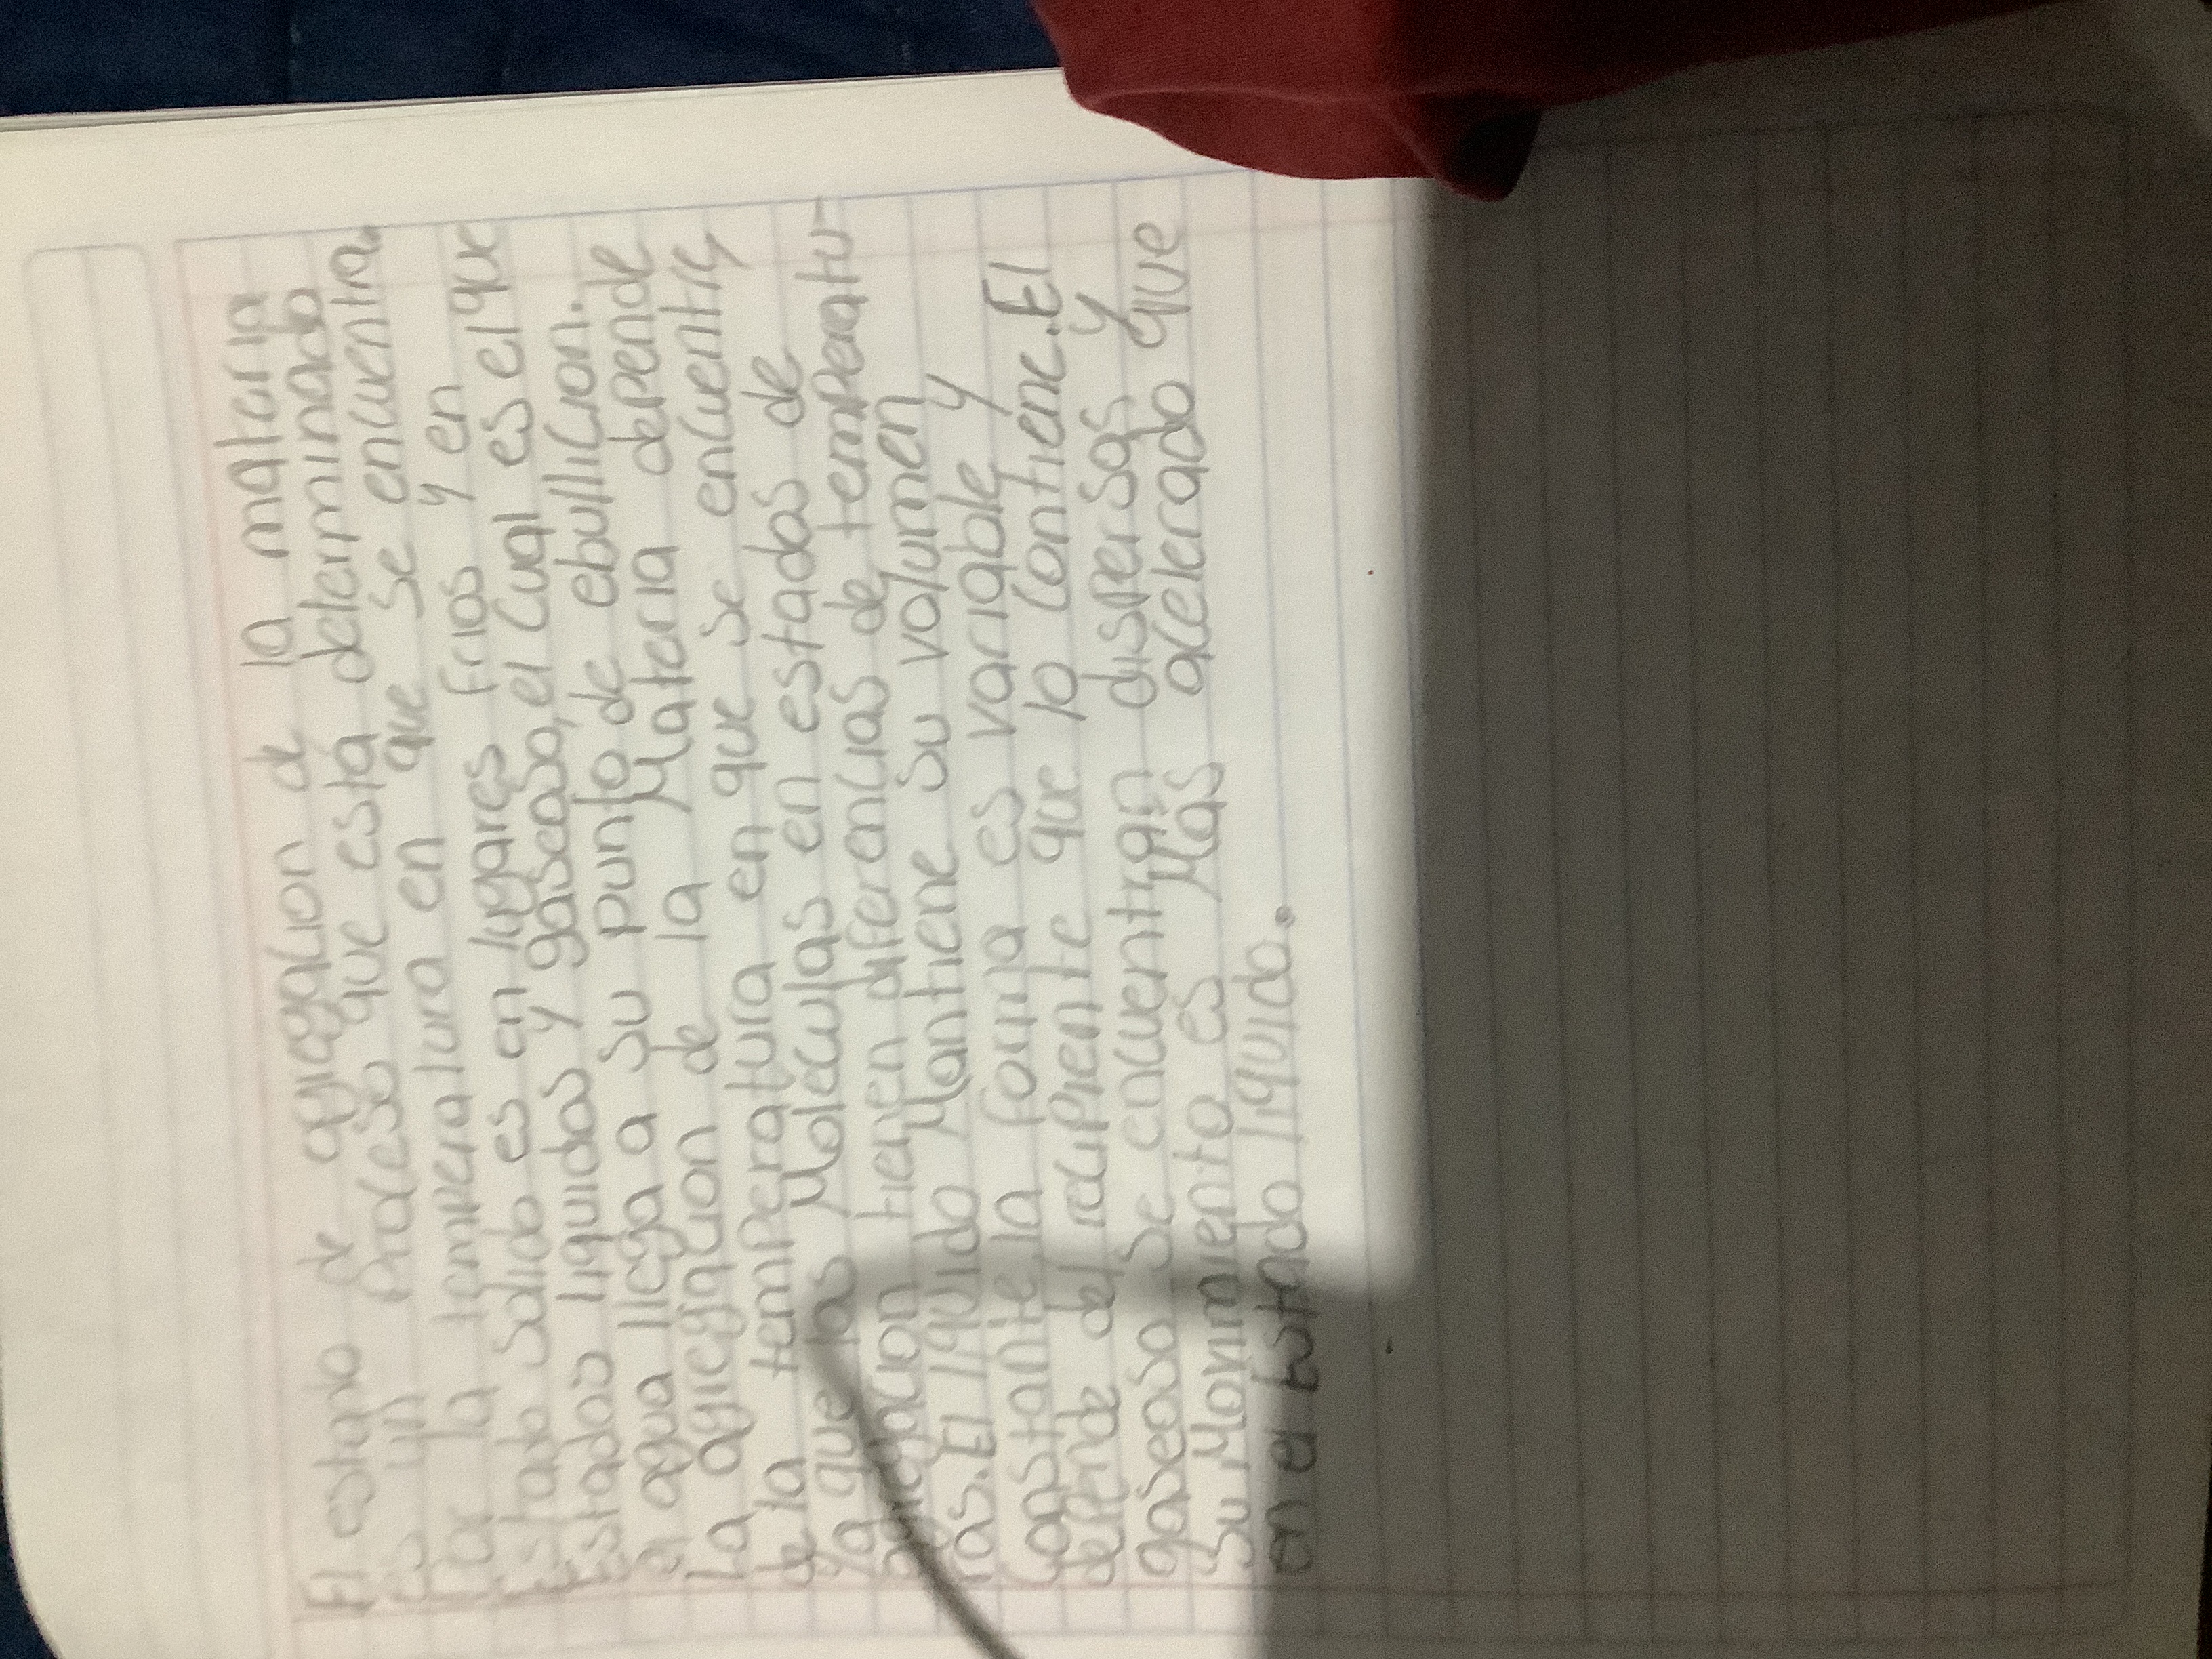 El estado de agregacion de la materia
es un Proceso que está determinado
Por la temperatura en que se encuentra.
Estado solido es en lugares frios y en
Estados liquidos y gaseoso, el cual es el que
el agua llega a su punto de ebullicion.
La agregacion de la Materia depende
de la temperatura en que se encuentre
Ya que las Moleculas en estados de
agregacion tienen diferencias de temperatu-
ras. El liquido Mantiene su volumen
Constante, la forma es variable y
depende del recipiente que lo contiene. El
gaseoso se encuentran dispersas y
Su Monimiento es Mas acelerado que
en el Estado liquido.